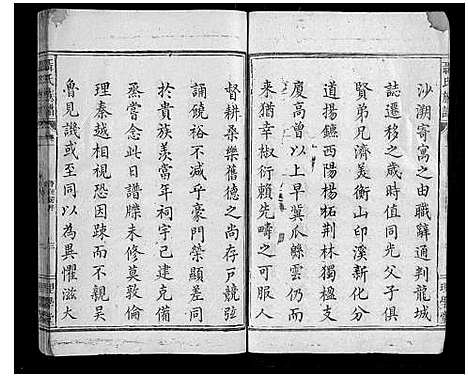 沙溯寄寓之由職辭通判龍城
誌遷移之歲時值同先父子俱
賢弟兄濟美衡山印溪新化分
道揚鑣西陽楊柘荆林獨楹支
廈高曾以上早冀瓜緜雲仍而
來猶幸椒衍賴先疇之可服人
督耕桑樂舊德之尚存戸競弦
誦饒裕不減乎豪門榮顯差同
於貴族羡當年祠宇已建克備
烝嘗念此日譜牒未修莫敦倫
理秦越相視恐因踈而不親吴
魯見譏或至同以為異懼滋大